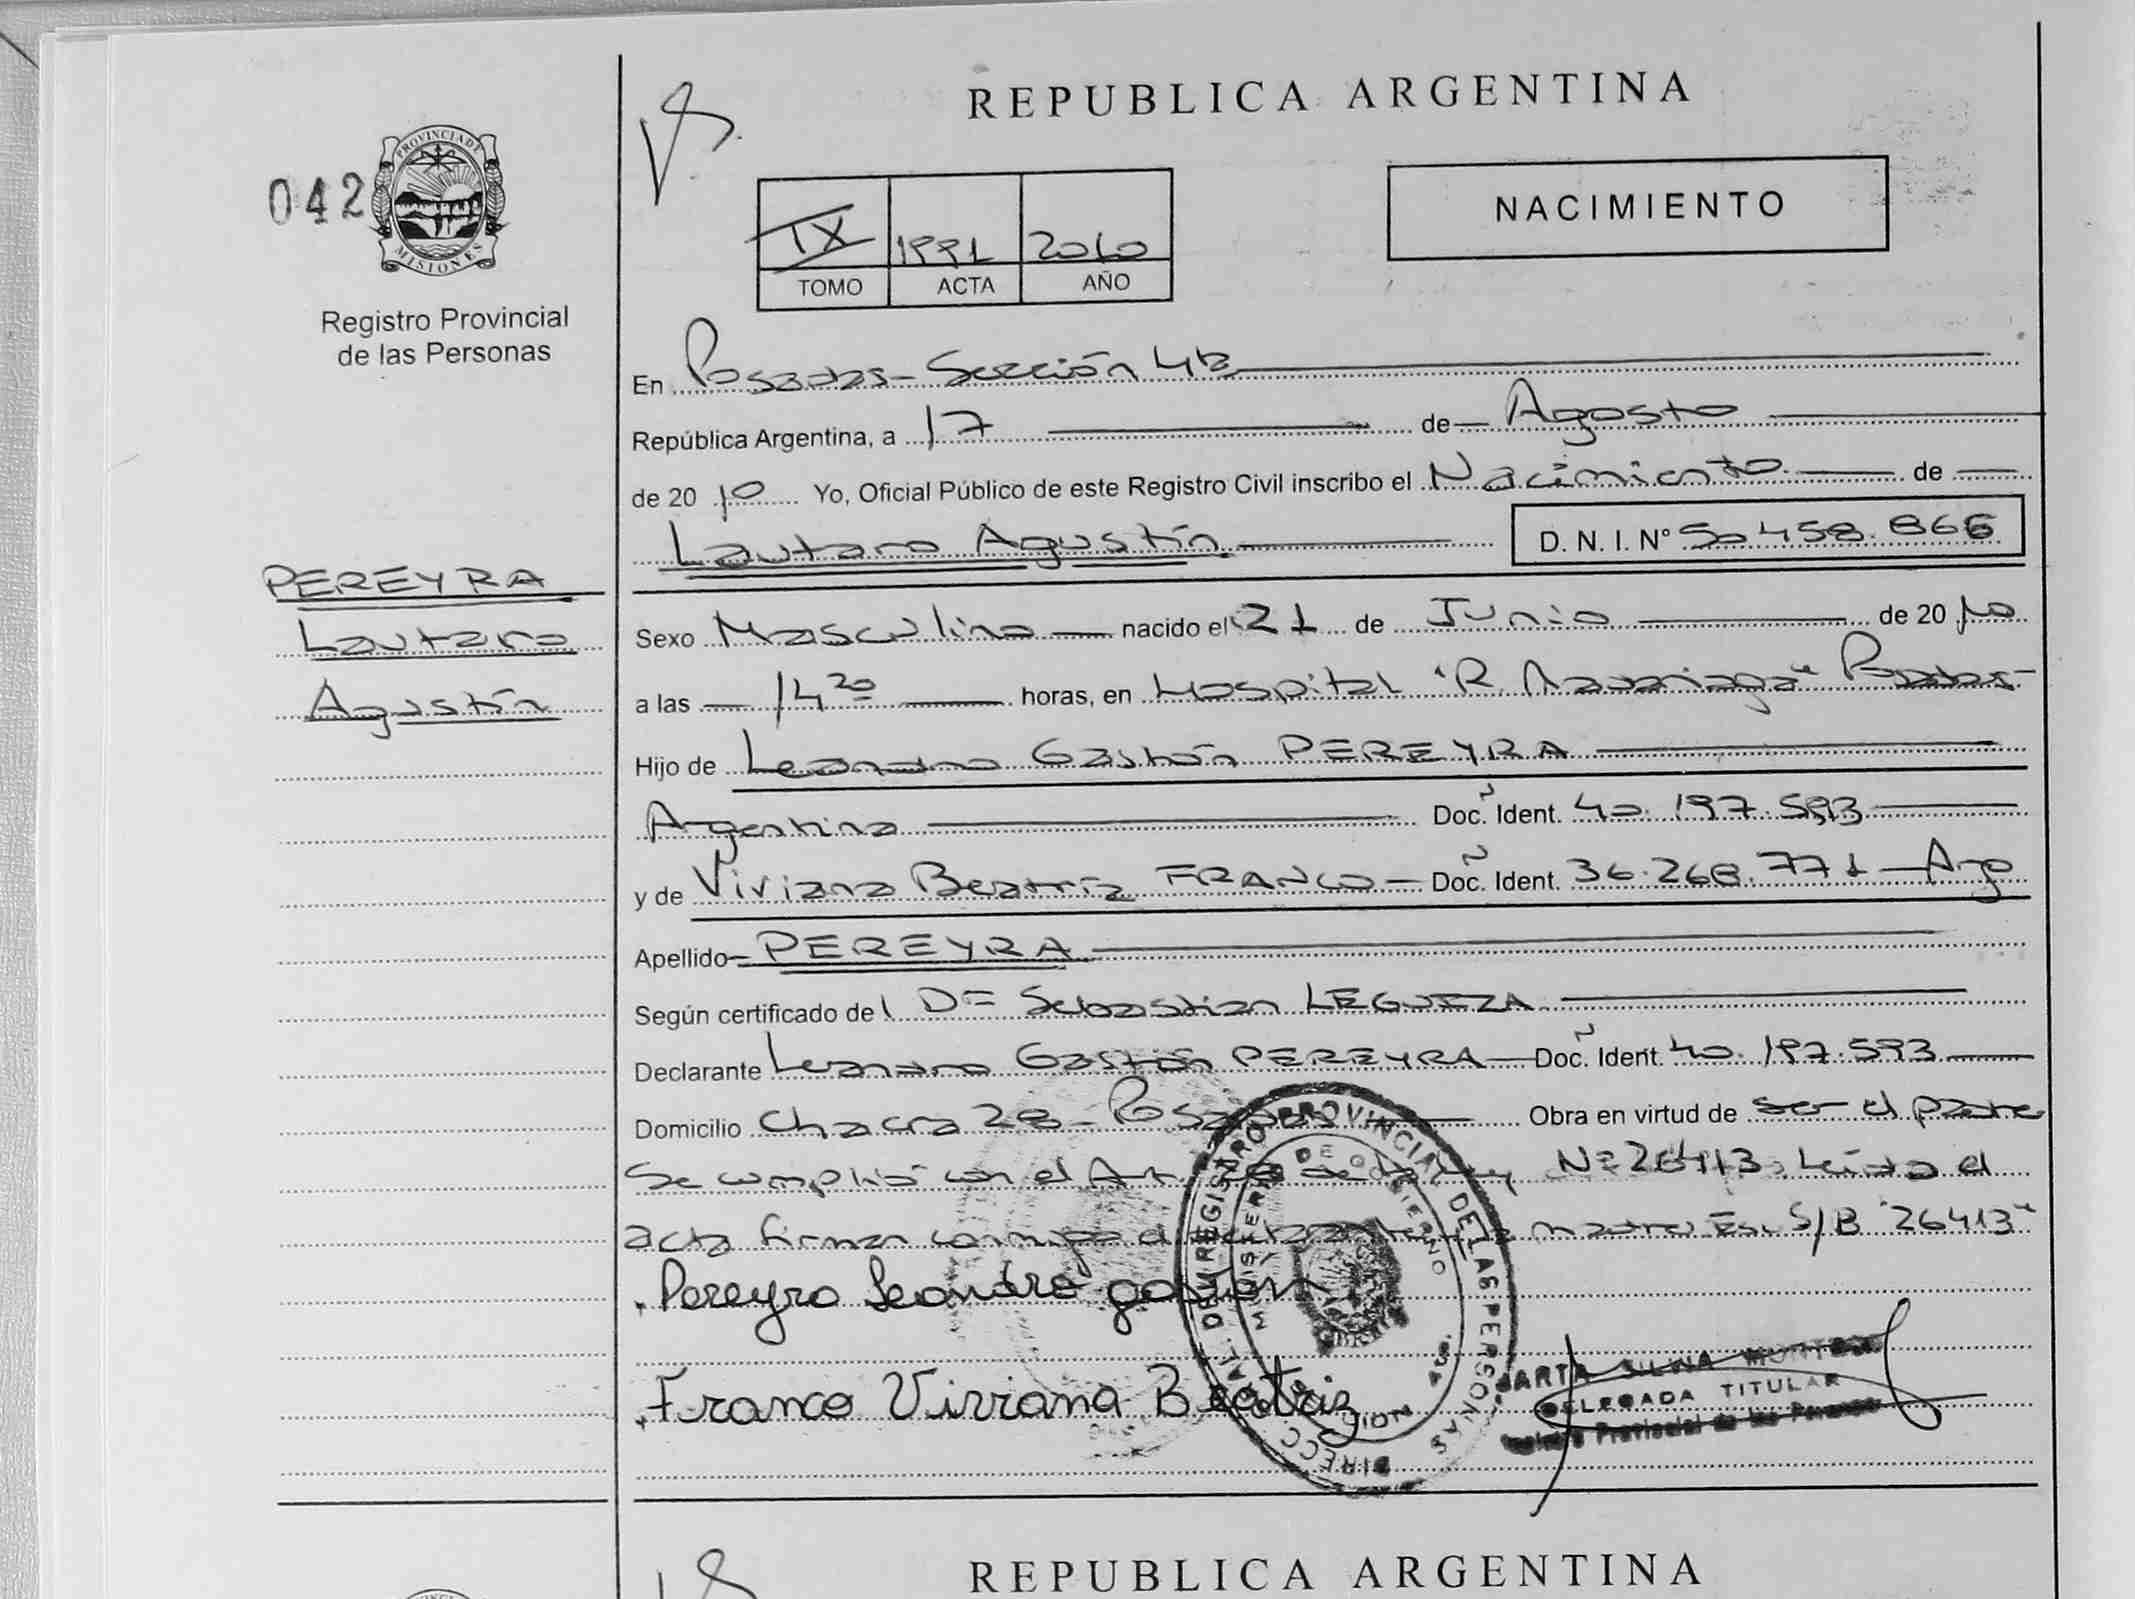 REPUBLICA ARGENTINA
042
PROVINCIA DE
MISIONES
Registro Provincial
de las Personas
NACIMIENTO
IX 1991 2010
TOMO ACTA AÑO
En Posadas - Sección 4ta
República Argentina, a 17 de Agosto
de 20 10 Yo, Oficial Público de este Registro Civil inscribo el Nacimiento de
Lautaro Agustín D. N. I. Nº 50.458.866
PEREYRA
Lautaro
Agustín
Sexo Masculino nacido el 21 de Junio de 20 10
a las 14 20 horas, en Hospital "R. Madariaga" Posadas-
Hijo de Leandro Gastón PEREYRA
Argentina Doc. Ident. 40.197.593
y de Viviana Beatriz FRANCO - Doc. Ident. 36.268.771 - Arg
Apellido PEREYRA
Según certificado del Dr Sebastian LEGUIZA
Declarante Leandro Gastón PEREYRA Doc. Ident. 40.197.593
Domicilio Chacra 28 - Posadas Obra en virtud de ser el padre
Se cumplió con el Art. de la Ley Nº 26413. Leída el
acta firman conmigo el declarante la madre. S/B "26413"
Pereyra Leandro gastón
Franco Viviana Beatriz
DIRECC. GRAL. DEL REGISTRO PROVINCIAL DE LAS PERSONAS
MINISTERIO DE GOBIERNO
MARTA SILVIA
DELEGADA TITULAR
Registro Provincial de las Personas
REPUBLICA ARGENTINA